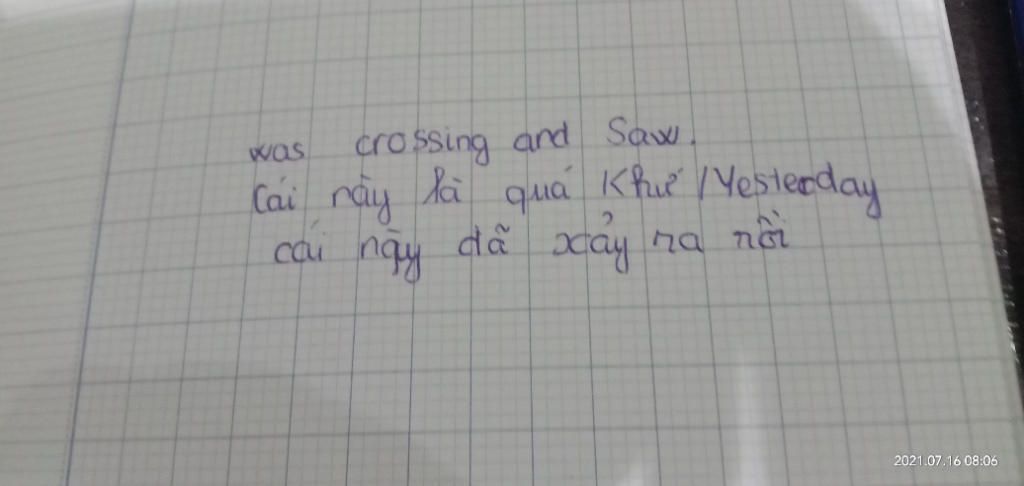 was crossing and saw.
Cái này là quá khứ / Yesterday
cái này đã xảy ra rồi
2021.07.16 08:06